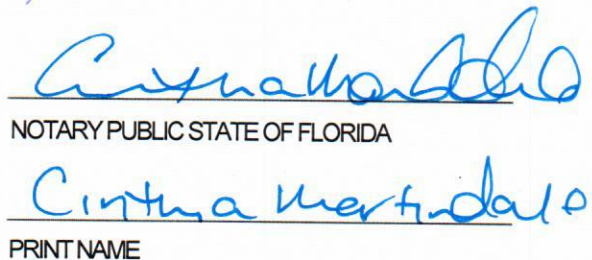 Cinthia Martindale
NOTARY PUBLIC STATE OF FLORIDA
Cinthia Martindale
PRINT NAME